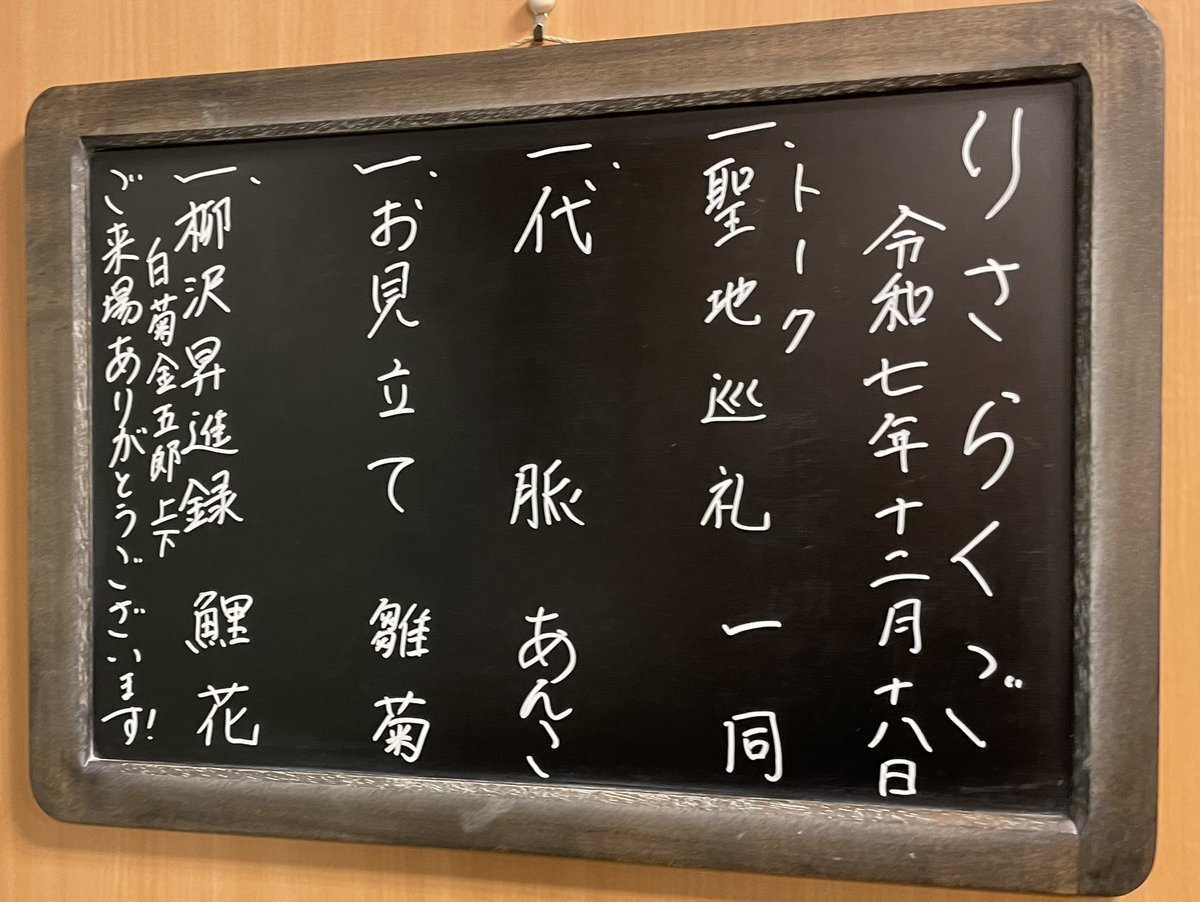 りさらくご
令和七年十二月十八日
トーク
一、聖地巡礼 一同
一、代脈 あんこ
一、お見立て 雛菊
一、柳沢昇進録 鯉花
白菊金五郎 上下
ご来場ありがとうございます!